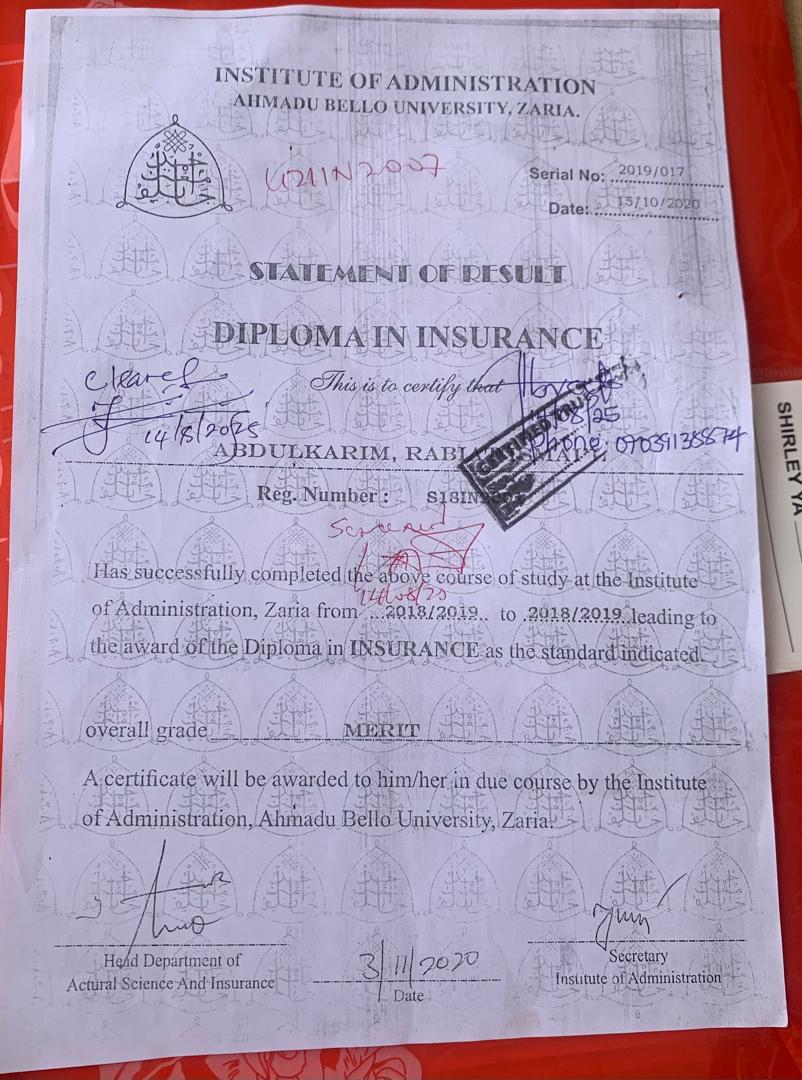 INSTITUTE OF ADMINISTRATION
AHMADU BELLO UNIVERSITY, ZARIA.
U21IN2007
Serial No: 2019/017
Date: 15/10/2020
STATEMENT OF RESULT
DIPLOMA IN INSURANCE
Cleared
This is to certify that
14/8/2025
08/25
Phone: 07039138874
ABDULKARIM, RABI
CERTIFIED TRUE
Reg. Number : S18IN
Screened
14/08/25
Has successfully completed the above course of study at the Institute
of Administration, Zaria from 2018/2019 to 2018/2019 leading to
the award of the Diploma in INSURANCE as the standard indicated.
overall grade MERIT
A certificate will be awarded to him/her in due course by the Institute
of Administration, Ahmadu Bello University, Zaria.
Head Department of
Actural Science And Insurance
3/11/2020
Date
Secretary
Institute of Administration
SHIRLEY YA